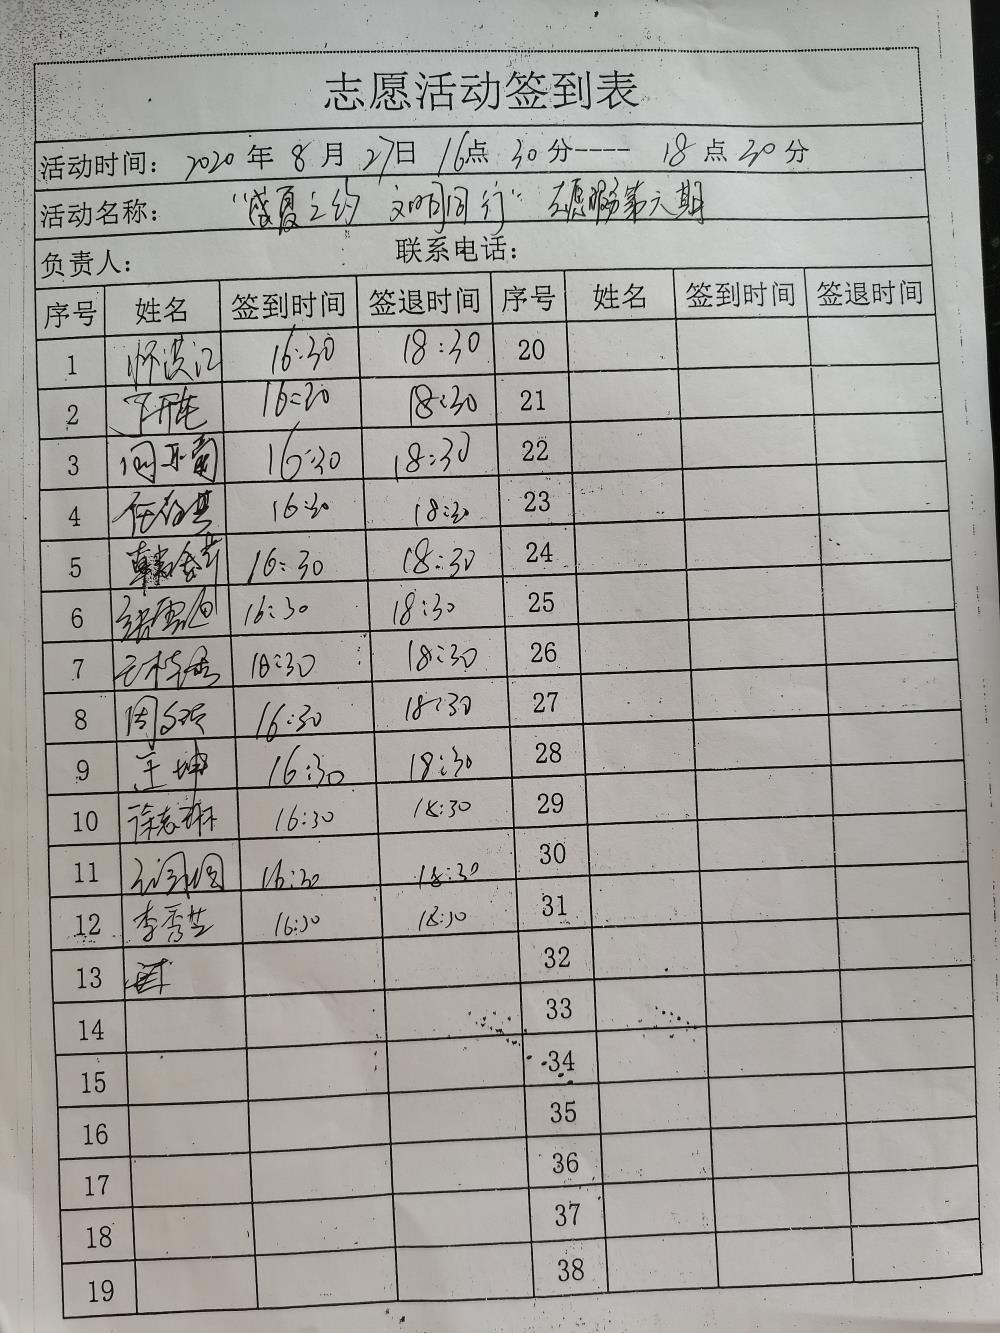 志愿活动签到表
活动时间： 2020 年 8 月 27日 16点 30分---- 18 点 30 分
活动名称： “盛夏之约 文明同行” 志愿服务第六期
负责人： 联系电话：
序号 姓名 签到时间 签退时间 序号 姓名 签到时间 签退时间
1 16:30 18:30 20
2 16:30 18:30 21
3 16:30 18:30 22
4 16:30 18:30 23
5 16:30 18:30 24
6 16:30 18:30 25
7 16:30 18:30 26
8 16:30 18:30 27
9 王坤 16:30 18:30 28
10 徐志琳 16:30 18:30 29
11 16:30 18:30 30
12 李秀芝 16:30 18:30 31
13 32
14 33
15 34
16 35
17 36
18 37
19 38